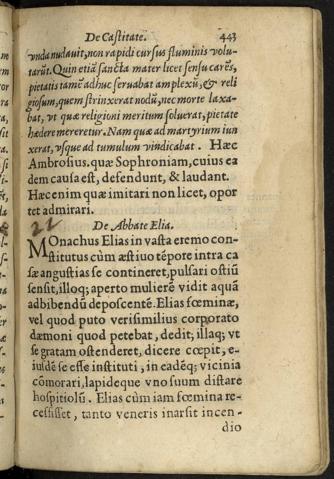 De Castitate. 443
vnda nudauit, non rapidi cursus fluminis volu-
tarūt. Quin etiā sancta mater licet sensu carēs,
pietatis tamē adhuc seruabat amplexū, & reli
giosum, quem strinxerat nodū, nec morte laxa-
bat, vt quæ religioni meritum solueret, pietate
hædere mereretur. Nam quæ ad martyrium iun
xerat, vsque ad tumulum vindicabat. Hæc
Ambrosius. quæ Sophroniam, cuius ea
dem causa est, defendunt, & laudant.
Hæc enim quæ imitari non licet, opor
tet admirari.
22
De Abbate Elia.
Monachus Elias in vasta eremo con-
stitutus cùm æstiuo tēpore intra ca
sæ angustias se contineret, pulsari ostiū
sensit, illoq; aperto mulierē vidit aquā
ad bibendū deposcentē. Elias fœminæ,
vel quod puto verisimilius corporato
dæmoni quod petebat, dedit; illaq; vt
se gratam ostenderet, dicere cœpit, e-
iusdē se esse instituti, in eadēq; vicinia
cōmorari, lapideque vno suum distare
hospitiolū. Elias cùm iam fœmina re-
cessisset, tanto veneris inarsit incen-
dio